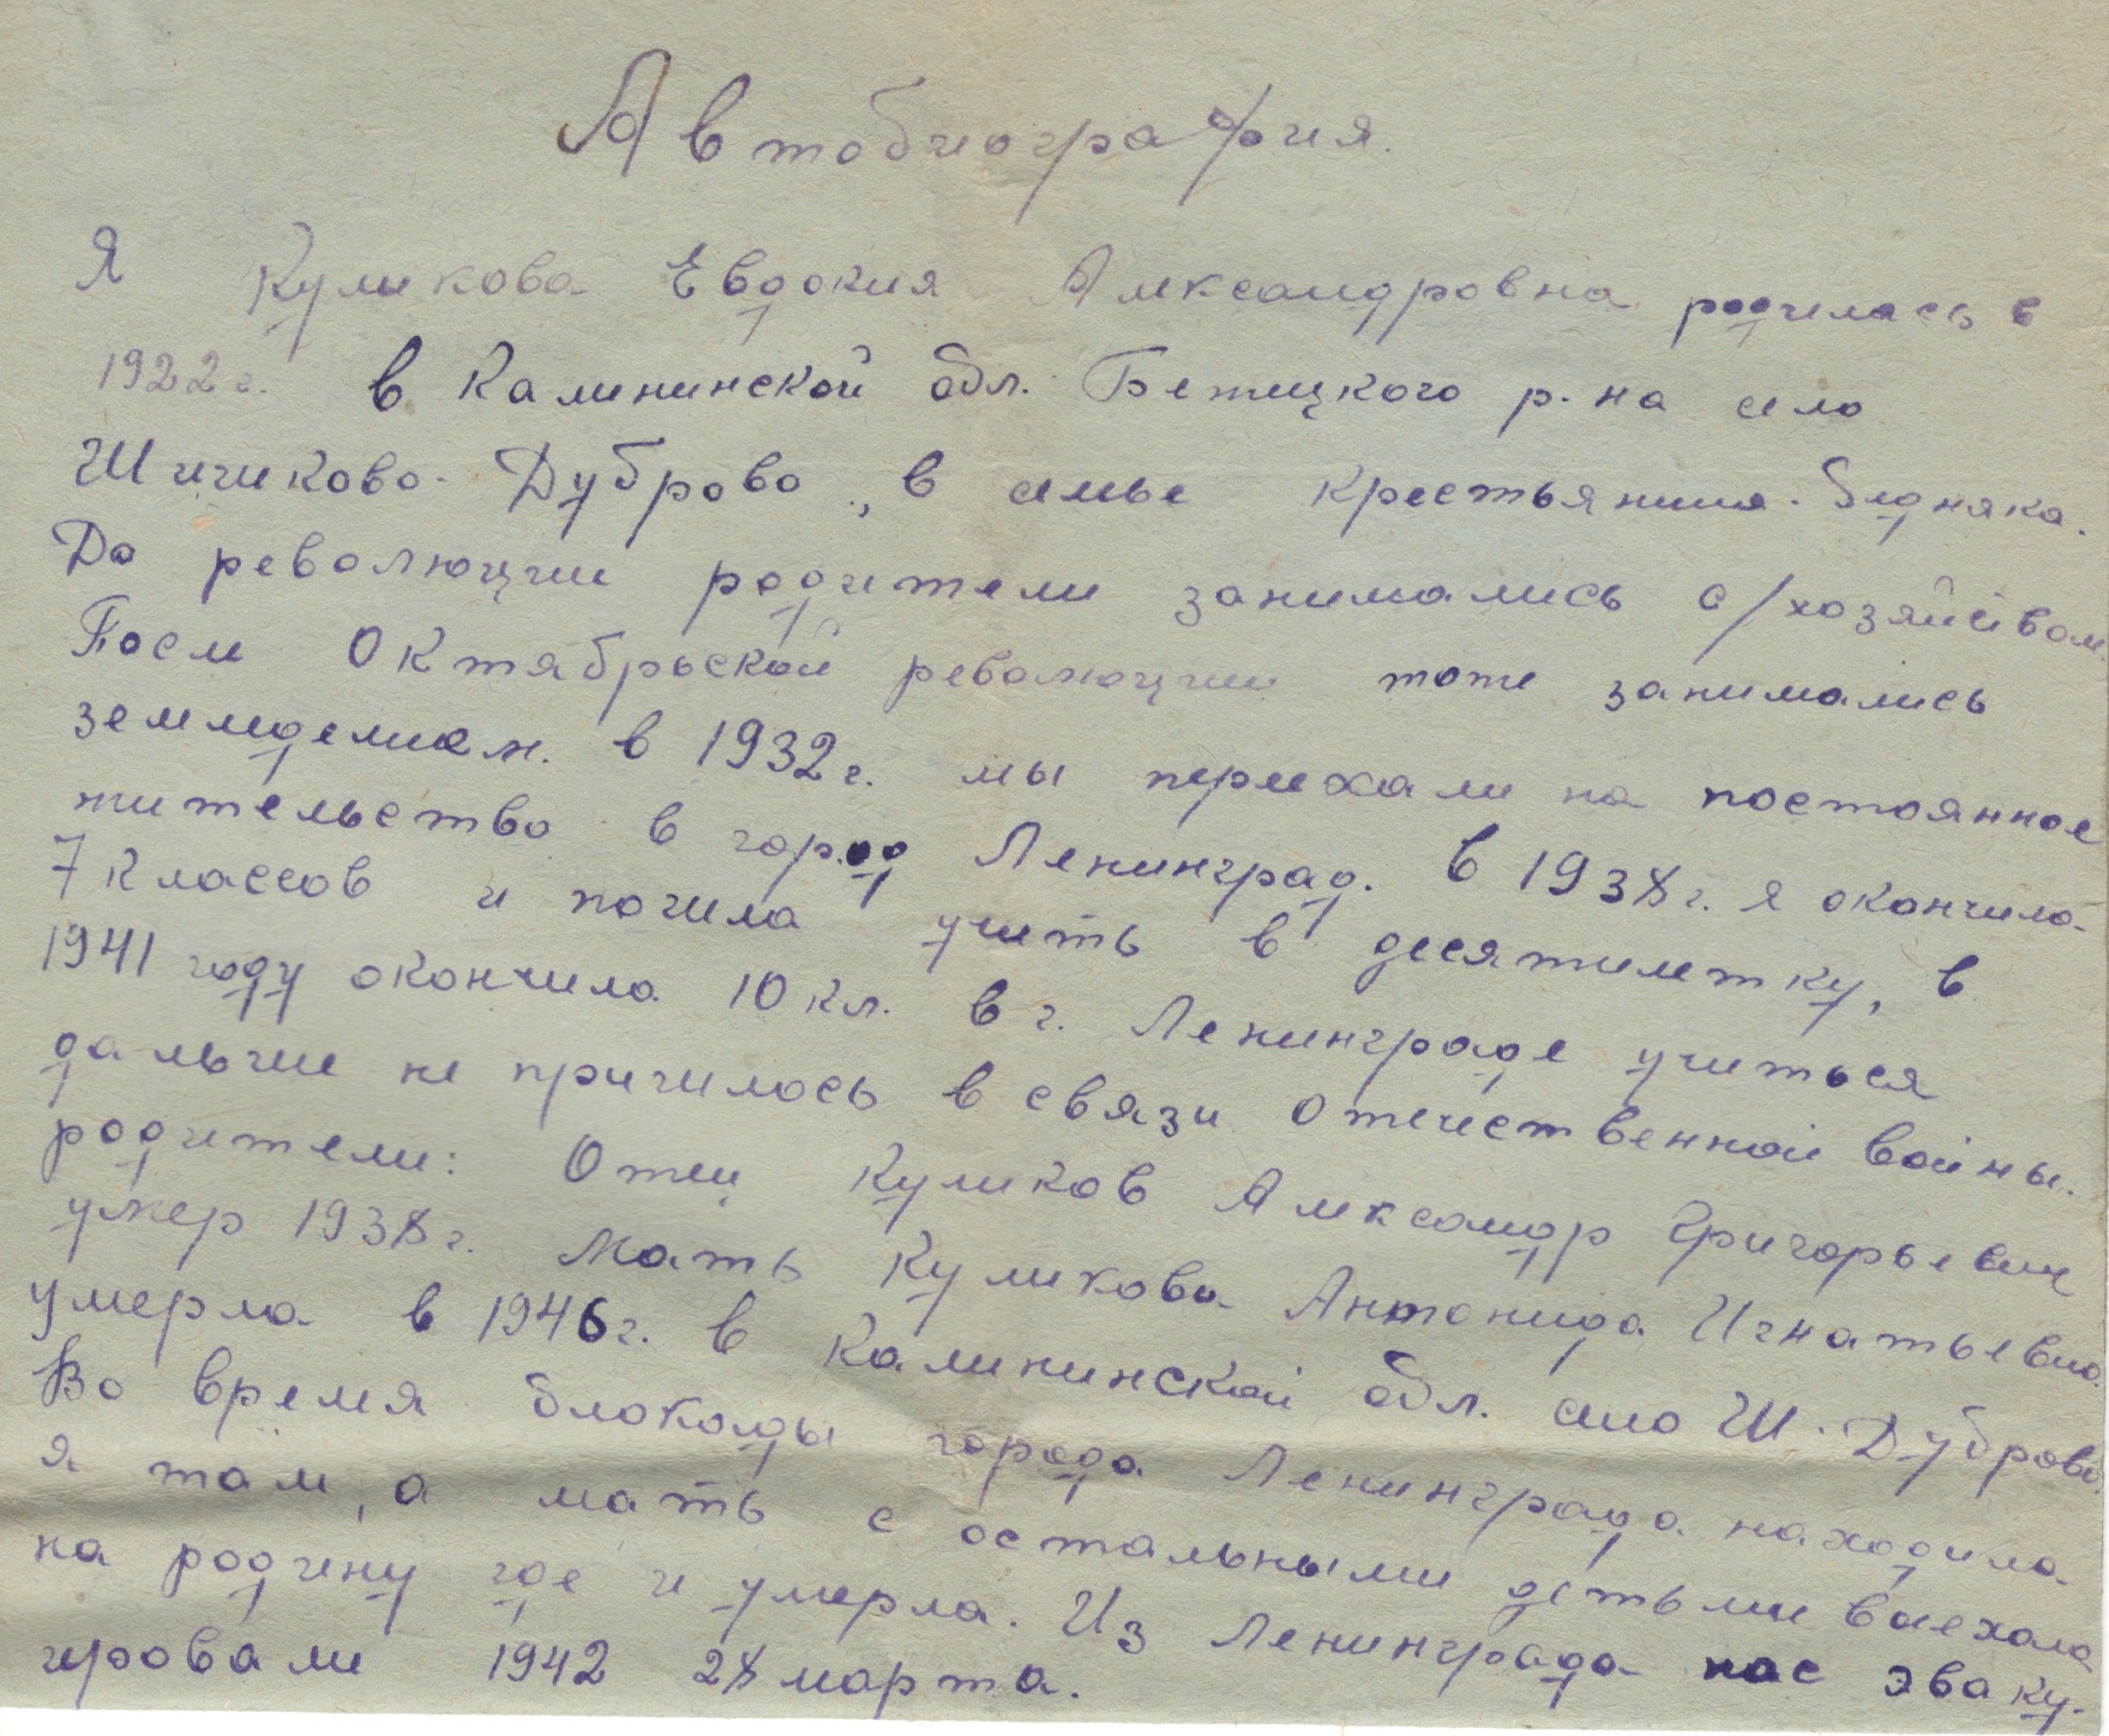 Автобиография.
Я Куликова Евдокия Александровна родилась в
1922 г. в Калининской обл. Бежицкого р-на село
Шишково-Дуброво, в семье крестьянина-бедняка.
До революции родители занимались с/хозяйством.
После Октябрьской революции тоже занимались
земледелием. в 1932 г. мы переехали на постоянное
жительство в город Ленинград. В 1938 г. я окончила
7 классов и пошла учить в десятилетку, в
1941 году окончила 10 кл. в г. Ленинграде учиться
дальше не пришлось в связи Отечественной войны.
родители: Отец Куликов Александр Григорьевич
умер 1938 г. Мать Куликова Антонида Игнатьевна
умерла в 1946 г. в Калининской обл. село Ш-Дуброво.
Во время блокады города Ленинграда находила
я там, а мать с остальными детьми выехала
на родину где и умерла. Из Ленинграда нас эваку-
ировали 1942 28 марта.